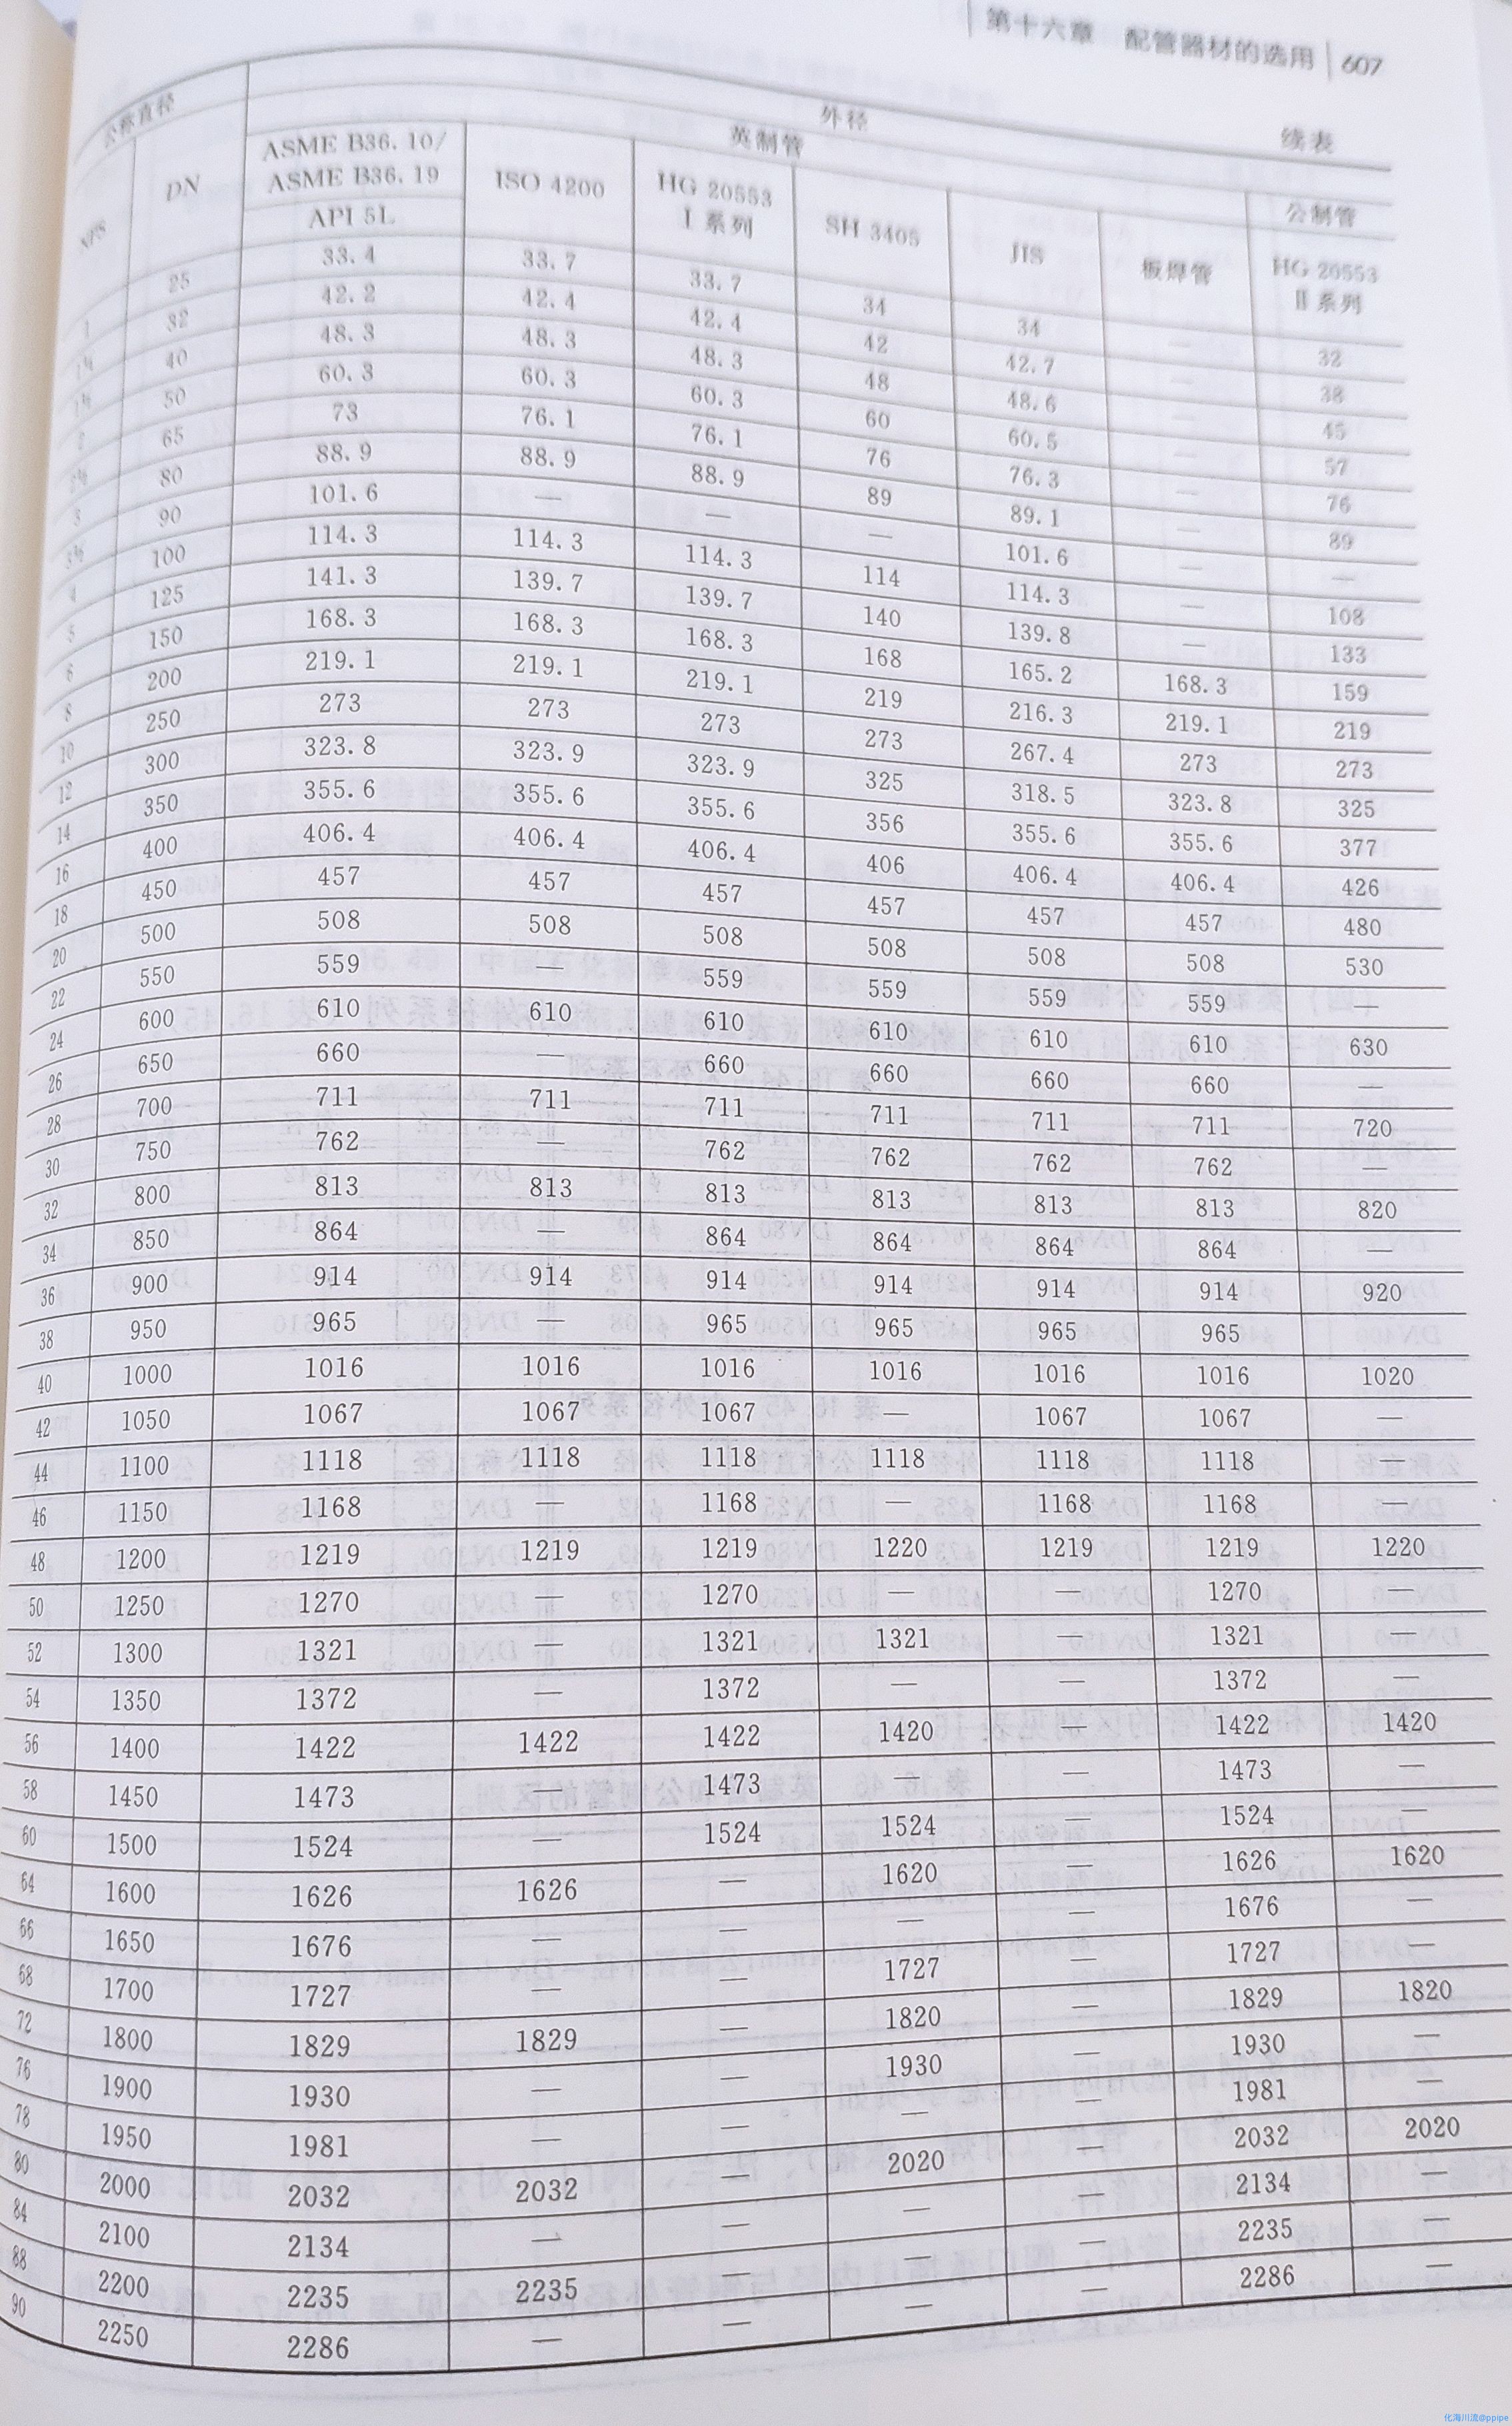 第十六章 配管器材的选用 607
续表
公称直径 外径
英制管 公制管
NPS DN ASME B36.10/ ASME B36.19 API 5L ISO 4200 HG 20553 Ⅰ系列 SH 3405 JIS 板焊管 HG 20553 Ⅱ系列
1 25 33.4 33.7 33.7 34 34 — 32
1¼ 32 42.2 42.4 42.4 42 42.7 — 38
1½ 40 48.3 48.3 48.3 48 48.6 — 45
2 50 60.3 60.3 60.3 60 60.5 — 57
2½ 65 73 76.1 76.1 76 76.3 — 76
3 80 88.9 88.9 88.9 89 89.1 — 89
3½ 90 101.6 — — — 101.6 — —
4 100 114.3 114.3 114.3 114 114.3 — 108
5 125 141.3 139.7 139.7 140 139.8 — 133
6 150 168.3 168.3 168.3 168 165.2 168.3 159
8 200 219.1 219.1 219.1 219 216.3 219.1 219
10 250 273 273 273 273 267.4 273 273
12 300 323.8 323.9 323.9 325 318.5 323.8 325
14 350 355.6 355.6 355.6 356 355.6 355.6 377
16 400 406.4 406.4 406.4 406 406.4 406.4 426
18 450 457 457 457 457 457 457 480
20 500 508 508 508 508 508 508 530
22 550 559 — 559 559 559 559 —
24 600 610 610 610 610 610 610 630
26 650 660 — 660 660 660 660 —
28 700 711 711 711 711 711 711 720
30 750 762 — 762 762 762 762 —
32 800 813 813 813 813 813 813 820
34 850 864 — 864 864 864 864 —
36 900 914 914 914 914 914 914 920
38 950 965 — 965 965 965 965
40 1000 1016 1016 1016 1016 1016 1016 1020
42 1050 1067 1067 1067 — 1067 1067 —
44 1100 1118 1118 1118 1118 1118 1118 —
46 1150 1168 — 1168 — 1168 1168 —
48 1200 1219 1219 1219 1220 1219 1219 1220
50 1250 1270 — 1270 — — 1270 —
52 1300 1321 — 1321 1321 — 1321 —
54 1350 1372 — 1372 — — 1372 —
56 1400 1422 1422 1422 1420 — 1422 1420
58 1450 1473 1473 — — 1473 —
60 1500 1524 — 1524 1524 — 1524 —
64 1600 1626 1626 — 1620 — 1626 1620
66 1650 1676 — — — — 1676 —
68 1700 1727 — — 1727 — 1727 —
72 1800 1829 1829 — 1820 — 1829 1820
76 1900 1930 — — 1930 — 1930 —
78 1950 1981 — — — — 1981 —
80 2000 2032 2032 — 2020 — 2032 2020
84 2100 2134 — — — — 2134 —
88 2200 2235 2235 — — — 2235 —
90 2250 2286 — — — — 2286 —
化海川流@ppipe